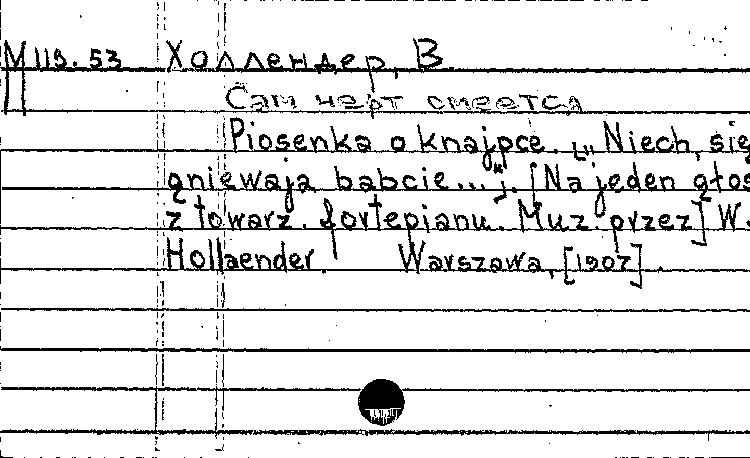 М 115.53 Холлендер, В.
П
Сам черт смеется
Piosenka o knajpce. [„Niech, się
gniewaja babcie..."]. [Na jeden głos
z towarz. fortepianu. Muz. przez] W.
Hollaender. Warszawa, [1907].